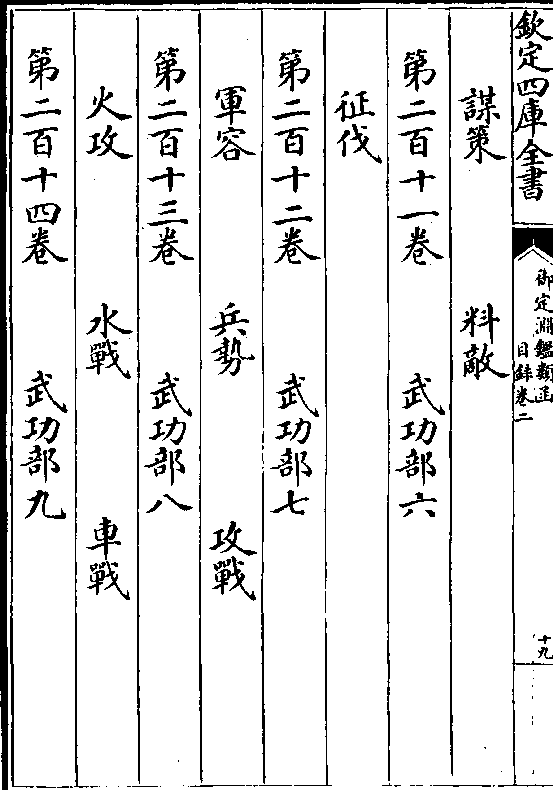 欽定四庫全書
御定淵鑑類函
目録卷二
十九
謀策 料敵
第二百十一卷 武功部六
征伐
第二百十二卷 武功部七
軍容 兵勢 攻戰
第二百十三卷 武功部八
火攻 水戰 車戰
第二百十四卷 武功部九